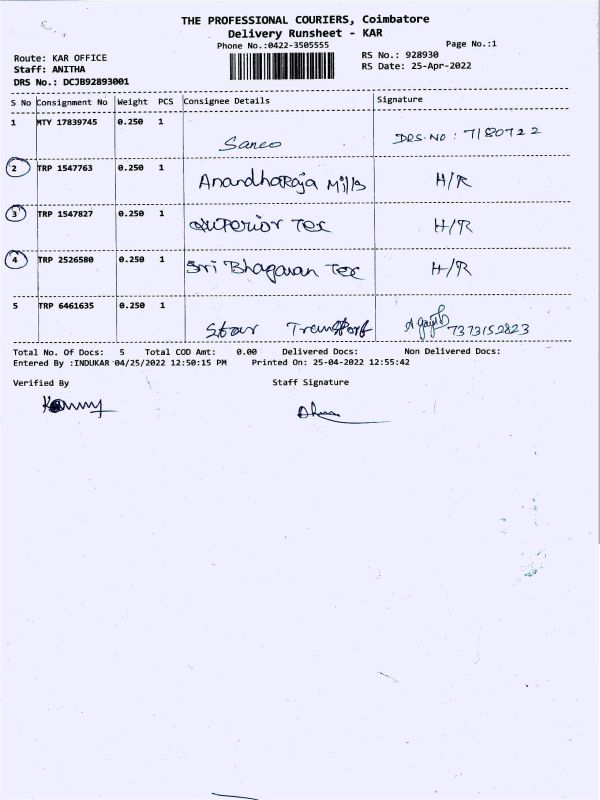 THE PROFESSIONAL COURIERS, Coimbatore
Delivery Runsheet - KAR
Phone No.:0422-3505555
Page No.:1
Route: KAR OFFICE
RS No.: 928930
Staff: ANITHA
RS Date: 25-Apr-2022
DRS No.: DCJB92893001
S No Consignment No Weight PCS Consignee Details Signature
1 MTY 17839745 0.250 1 Sanco DRS.NO : 7180722
2 TRP 1547763 0.250 1 Anandharaja Mills H/R
3 TRP 1547827 0.250 1 Superior Tex H/R
4 TRP 2526580 0.250 1 Sri Bhagavan Tex H/R
5 TRP 6461635 0.250 1 Star Transport 7373152823
Total No. Of Docs: 5 Total COD Amt: 0.00 Delivered Docs: Non Delivered Docs:
Entered By :INDUKAR 04/25/2022 12:50:15 PM Printed On: 25-04-2022 12:55:42
Verified By Staff Signature